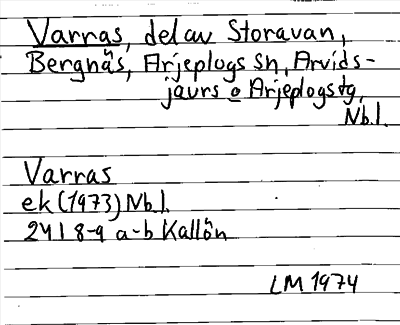 Varras, del av Storavan,
Bergnäs, Arjeplogs sn, Arvids-
jaurs o Arjeplogs tg,
Nb.l.
Varras
ek (1973) Nb.l.
24I 8-9 a-b Kallön
LM 1974